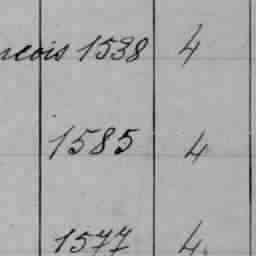 1538 4
1585 4
1577 4.